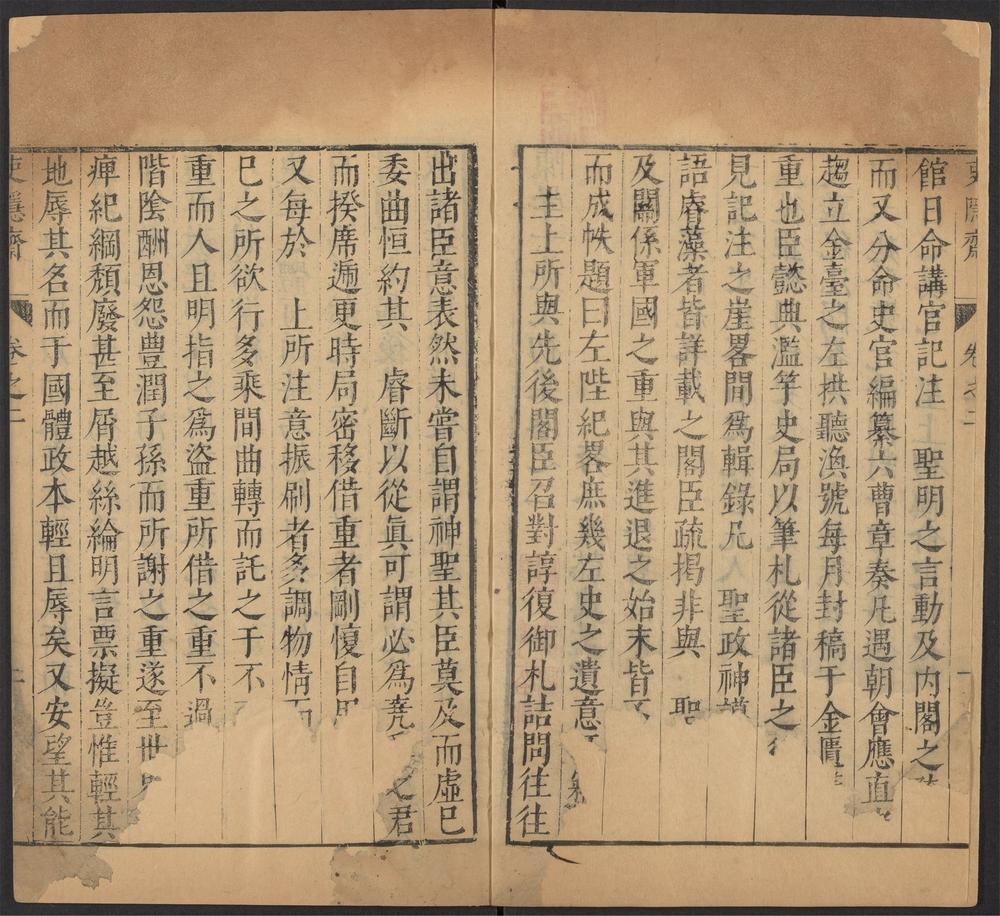 館日命講官記注　聖明之言動及内閣之
而又分命史官編纂六曹章奏凡遇朝會應直
趨立金臺之左拱聽渙號每月封稿于金匱
重也臣懿典濫竽史局以筆札從諸臣之
見記注之崖畧間爲輯錄凡　聖政神謨
語睿藻者皆詳載之閣臣疏揭非與　聖
及關係軍國之重與其進退之始末皆
而成帙題曰左陛紀畧庶幾左史之遺意
主上所與先後閣臣召對諄復御札詰問往往
卷之二
一
出諸臣意表然未嘗自謂神聖其臣莫及而虛已
委曲恒約其　睿斷以從眞可謂必爲堯　之君
而揆席遞更時局密移借重者剛愎自
又每於　上所注意振刷者多調物情
已之所欲行多乘間曲轉而託之于不
重而人且明指之爲盜重所借之重不過
階陰酬恩怨豊潤子孫而所謝之重遂至世
痺紀綱頹廢甚至屑越絲綸明言票擬豈惟輕其
地辱其名而于國體政本輕且辱矣又安望其能
齋　卷之二